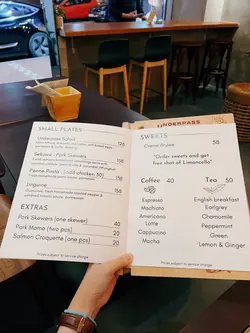 SMALL PLATES
Underpass Salad
128
Sekuwa - Pork Skewers
158
Penne Pasta - (add chicken 30)
128
Linguine
158
EXTRAS
Pork Skewers (one skewer)
40
Pork Momo (two pcs)
20
Salmon Croquette (one pcs)
20
Prices subject to service charge.
SWEETS
Creme Brulee
58
"Order sweets and get
free shot of Limoncello"
Coffee 40
Espresso
Machiato
Americano
Latte
Cappucino
Mocha
Tea 50
English breakfast
Earlgrey
Chamomile
Peppermint
Green
Lemon & Ginger
Prices subject to service charge.
UNDERPASS